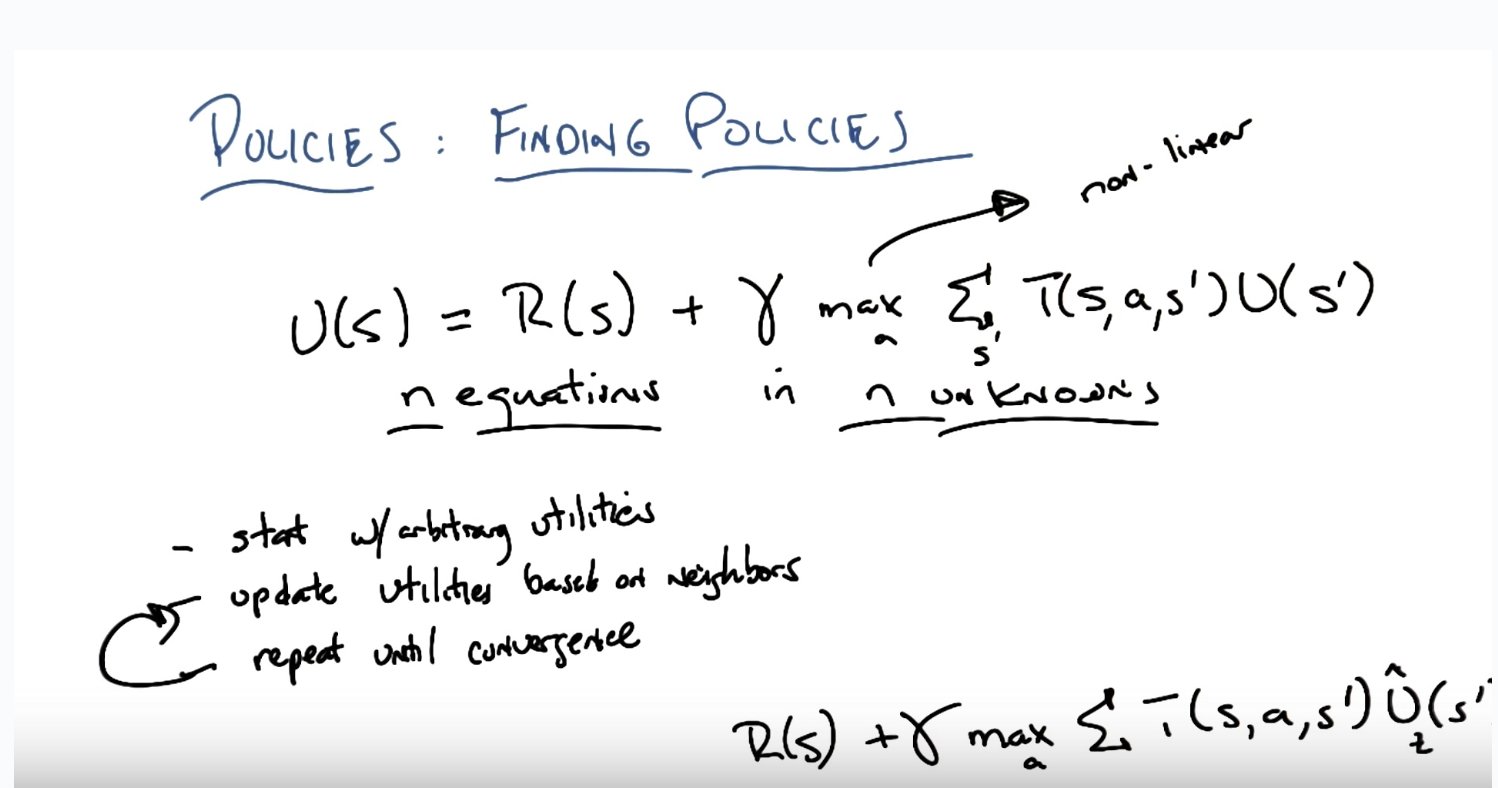 POLICIES : FINDING POLICIES
non-linear
U(s) = R(s) + γ max_a Σ_s' T(s,a,s') U(s')
n equations in n unknowns
- start w/ arbitrary utilities
- update utilities based on neighbors
repeat until convergence
R(s) + γ max_a Σ T(s,a,s') Û_t(s'